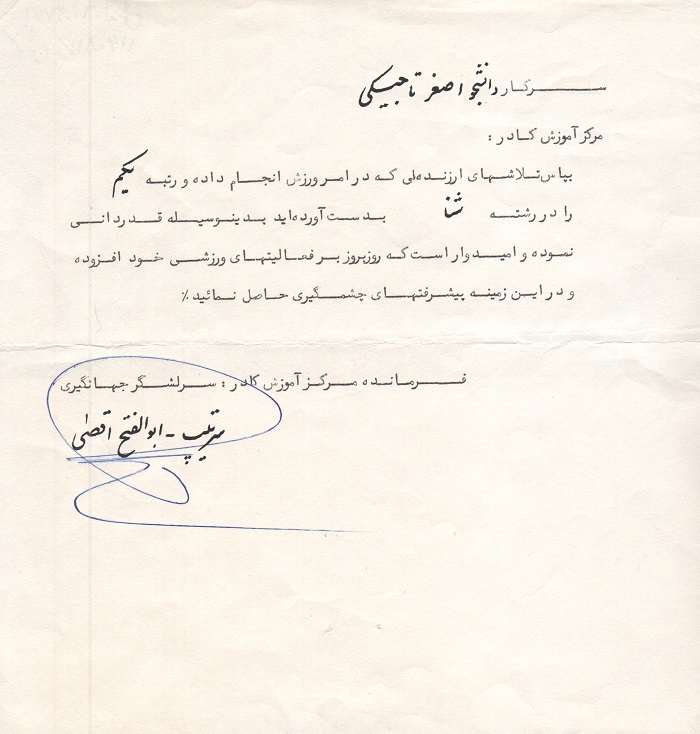 سرکار دانشجو اصغر تاجیکی
مرکز آموزش کادر :
بپاس تلاشهای ارزنده‌ای که در امر ورزش انجام داده و رتبه یکم
را در رشته شنا بدست آورده‌اید بدینوسیله قدردانی
نموده و امیدوار است که روزبروز بر فعالیتهای ورزشی خود افزوده
و در این زمینه پیشرفتهای چشمگیری حاصل نمائید٪
فرمانده مرکز آموزش کادر : سرلشگر جهانگیری
سرتیپ - ابوالفتح